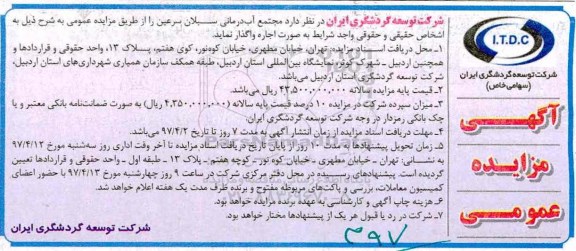 I.T.D.C
شرکت توسعه گردشگری ایران
(سهامی خاص)
آگهی
مزایده
عمومی
شرکت توسعه گردشگری ایران در نظر دارد مجتمع آب‌درمانی سبلان سرعین را از طریق مزایده عمومی به شرح ذیل به
اشخاص حقیقی و حقوقی واجد شرایط به صورت اجاره واگذار نماید.
۱- محل دریافت اسناد مزایده: تهران، خیابان مطهری، خیابان کوه‌نور، کوی هفتم، پلاک ۱۳، واحد حقوقی و قراردادها و
همچنین اردبیل - شهرک کوثر، نمایشگاه بین‌المللی استان اردبیل، طبقه همکف سازمان همیاری شهرداری‌های استان اردبیل،
شرکت توسعه گردشگری استان اردبیل می‌باشد.
۲- قیمت پایه مزایده سالانه ۴۳,۵۰۰,۰۰۰,۰۰۰ ریال می‌باشد.
۳- میزان سپرده شرکت در مزایده ۱۰ درصد قیمت پایه سالانه (۴,۳۵۰,۰۰۰,۰۰۰ ریال) به صورت ضمانت‌نامه بانکی معتبر و یا
چک بانکی رمزدار در وجه شرکت توسعه گردشگری ایران.
۴- مهلت دریافت اسناد مزایده از زمان انتشار آگهی به مدت ۷ روز تا تاریخ ۹۷/۴/۳ می‌باشد.
۵- زمان تحویل پیشنهادها به مدت ۱۰ روز از پایان تاریخ دریافت اسناد مزایده تا آخر وقت اداری روز سه‌شنبه مورخ ۹۷/۴/۱۲
به نشانی: تهران - خیابان مطهری - خیابان کوه نور - کوچه هفتم - پلاک ۱۳ - طبقه اول - واحد حقوقی و قراردادها تعیین
گردیده است. پیشنهادهای رسیده در محل دفتر مرکزی شرکت در ساعت ۹ روز چهارشنبه مورخ ۹۷/۴/۱۳ با حضور اعضای
کمیسیون معاملات، بررسی و پاکت‌های مربوطه مفتوح و برنده ظرف مدت یک هفته اعلام خواهد شد.
۶- هزینه چاپ آگهی و کارشناسی به عهده برنده مزایده خواهد بود.
۷- شرکت در رد یا قبول هر یک از پیشنهادها مختار خواهد بود.
شرکت توسعه گردشگری ایران